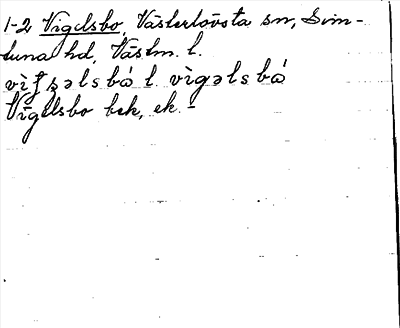 1-2 Vigelsbo, Västerlövsta sn, Sim-
tuna hd, Västm. l.
vìgəlsbó l. vìgəlsbó
Vigelsbo bek, ek. -